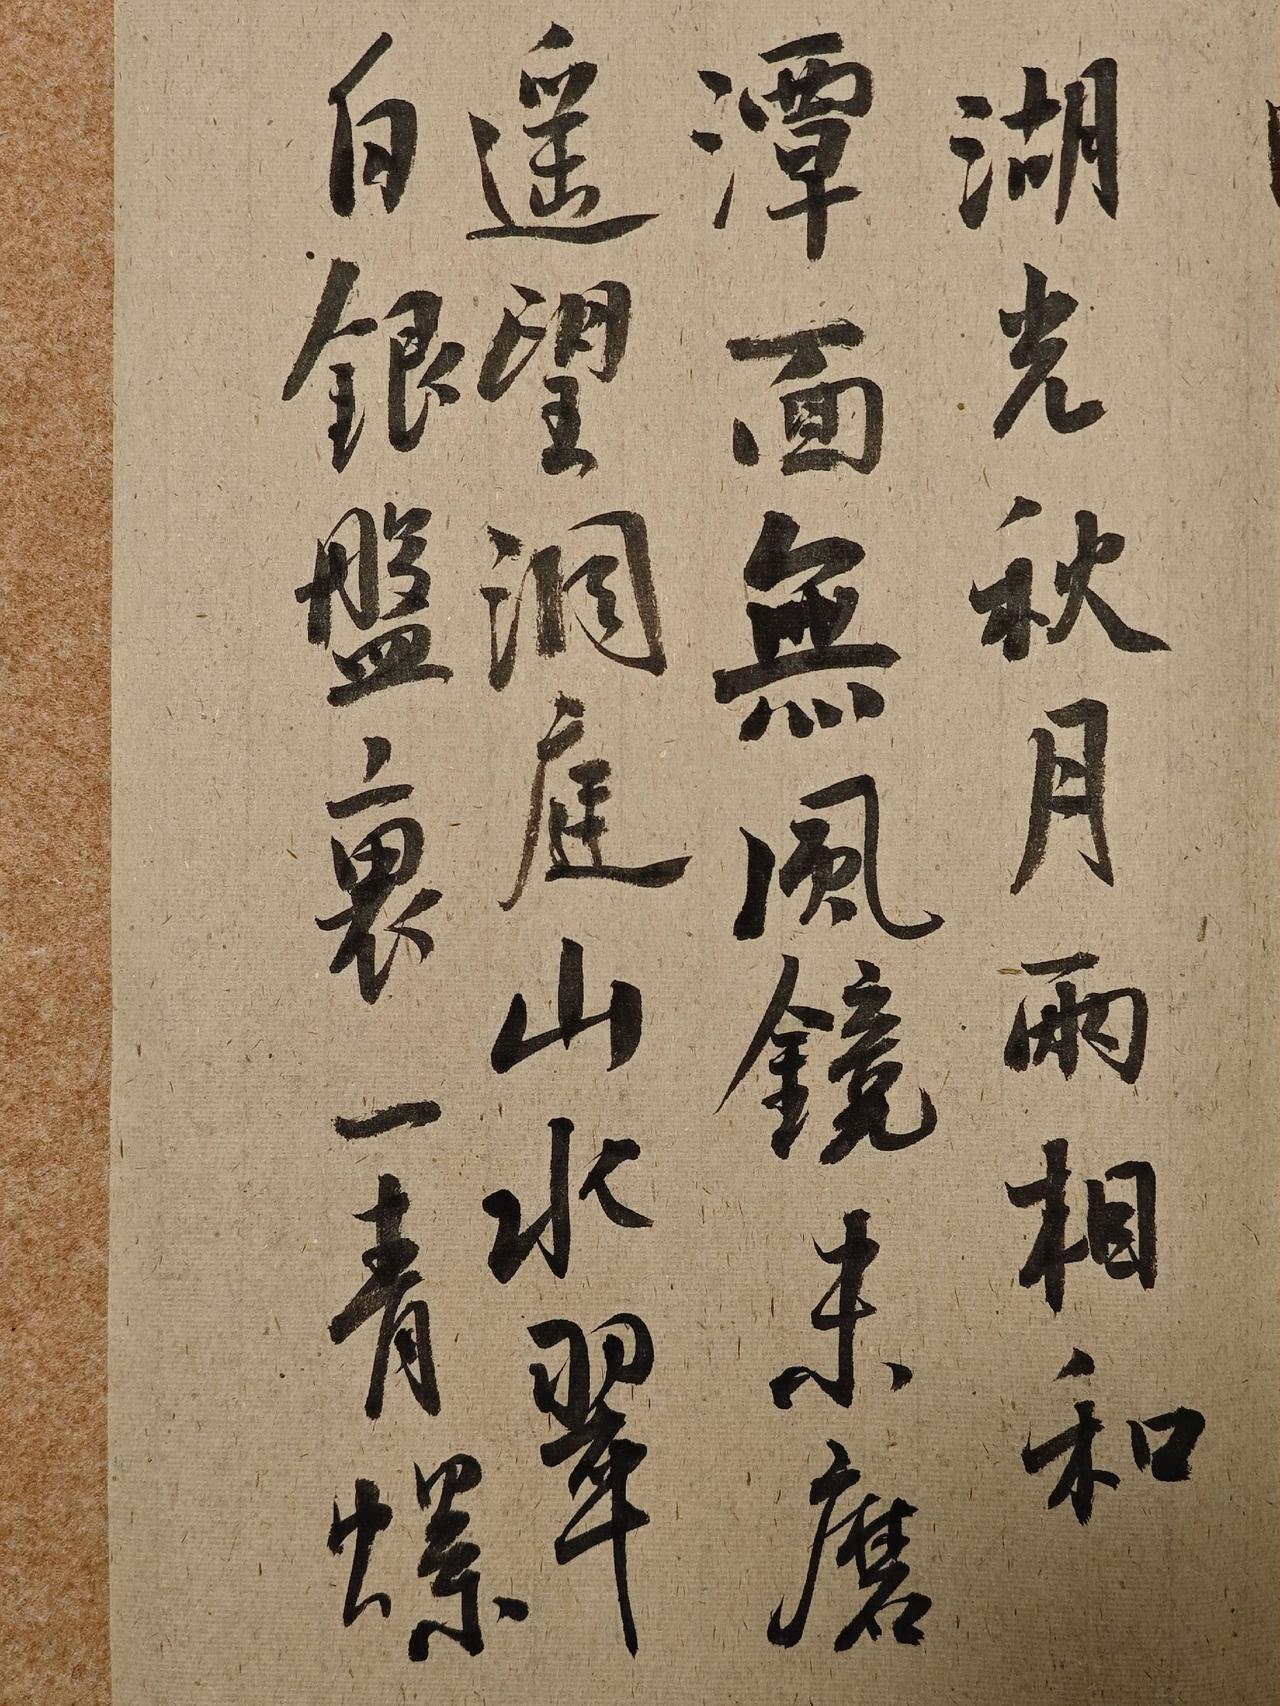 湖光秋月兩相和
潭面無風鏡未磨
遥望洞庭山水翠
白銀盤裏一青螺